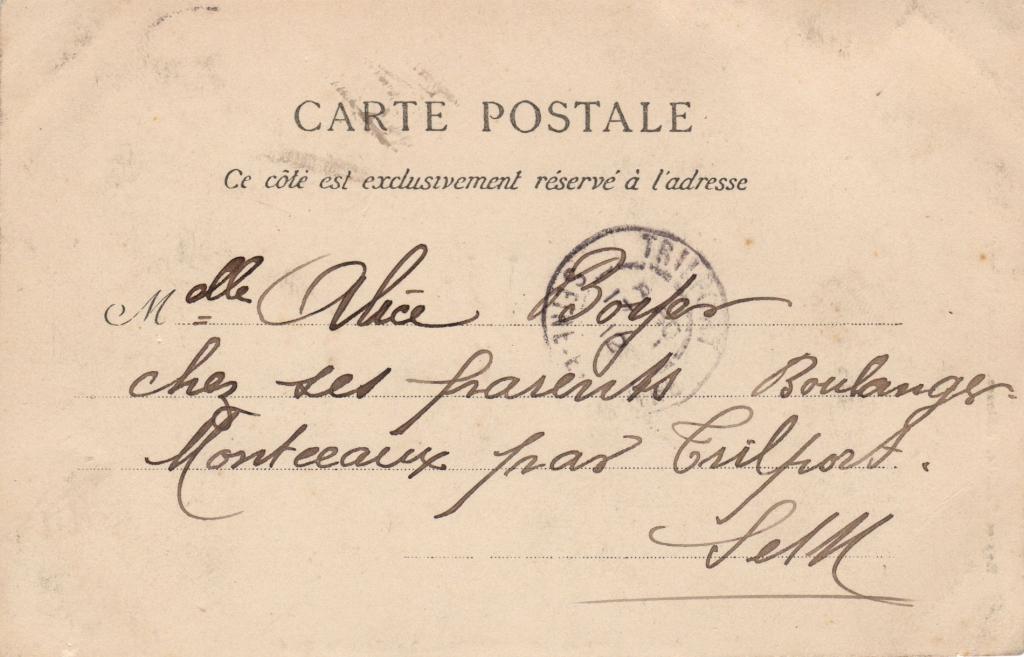 CARTE POSTALE
Ce côté est exclusivement réservé à l'adresse
Melle Alice Boyer
chez ses parents Boulanger
Montceaux par Trilport.
S et M
TRILPORT